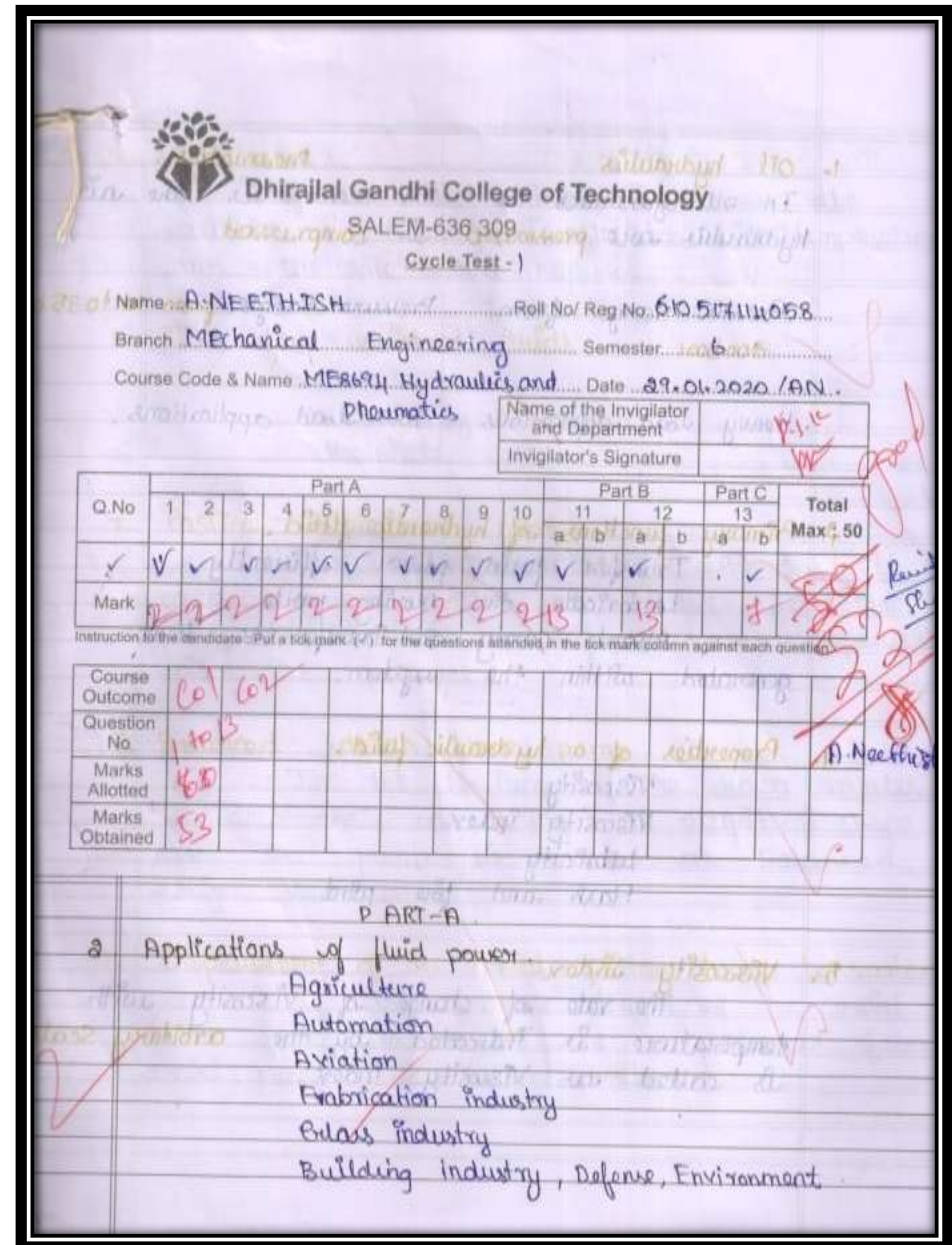 Dhirajlal Gandhi College of Technology
SALEM-636 309
Cycle Test - 1
Name A.NEETHISH Roll No/ Reg No. 610517114058
Branch MEchanical Engineering Semester 6
Course Code & Name ME8694 Hydraulics and Date 29.01.2020 /AN.
Pheumatics
Name of the Invigilator and Department
Invigilator's Signature
good
Part A Part B Part C Total
Q.No 1 2 3 4 5 6 7 8 9 10 11 12 13 Max : 50
a b a b a b
✓ ✓ ✓ ✓ ✓ ✓ ✓ ✓ ✓ ✓ ✓ ✓ ✓ ✓
Mark 2 2 2 2 2 2 2 2 2 2 13 13 7
53
Instruction to the candidate : Put a tick mark (✓) for the questions attended in the tick mark column against each question
Course Outcome CO1 CO2
Question No. 1 to 13
Marks Allotted
Marks Obtained 53
A. Neethish
PART-A
2 Applications of fluid power.
Agriculture
Automation
Aviation
Frabrication industry
Glass industry
Building industry, Defense, Environment